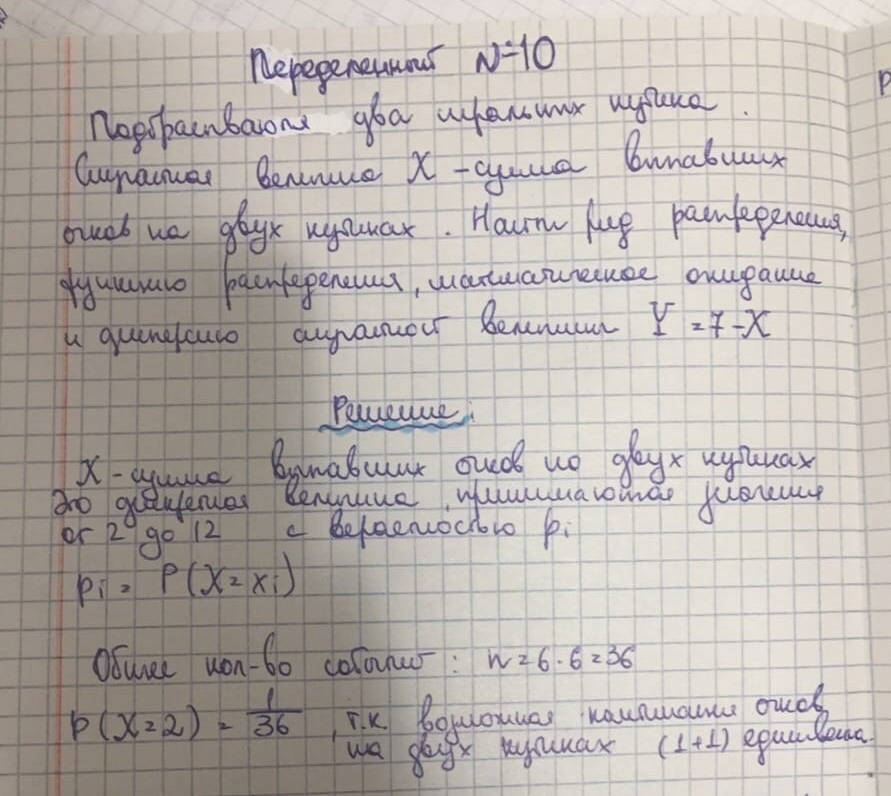 Переделенный №10
Подбрасываются два игральных кубика.
Случайная величина X - сумма выпавших
очков на двух кубиках. Найти ряд распределения,
функцию распределения, математическое ожидание
и дисперсию случайной величины Y = 7 - X
Решение:
X - сумма выпавших очков на двух кубиках
Это дискретная величина, принимающая значения
от 2 до 12 с вероятностью pi
pi = P(X = xi)
Общее кол-во событий: n = 6 · 6 = 36
p(X = 2) = 1/36, т.к. возможная комбинация очков
на двух кубиках (1+1) единственна.